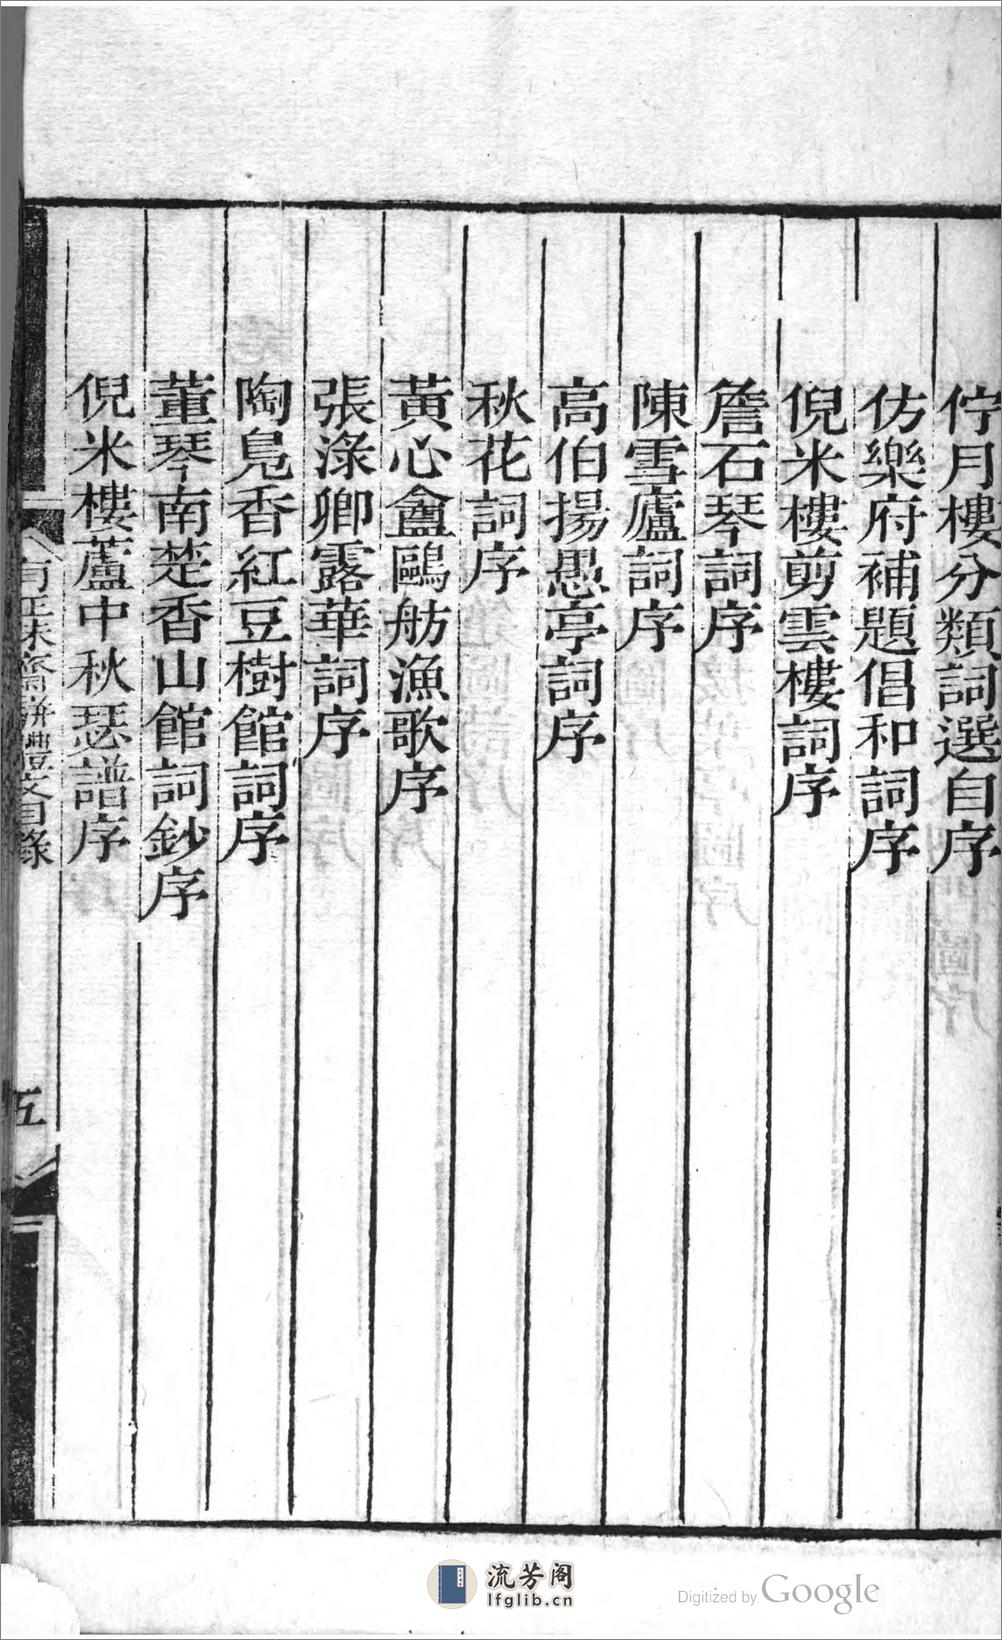 佇月樓分類詞選自序
仿樂府補題倡和詞序
倪米樓剪雲樓詞序
詹石琴詞序
陳雪廬詞序
高伯揚愚亭詞序
秋花詞序
黃心盦鷗舫漁歌序
張淥卿露華詞序
陶鳧香紅豆樹館詞序
董琴南楚香山館詞鈔序
倪米樓蘆中秋瑟譜序
有正味齋駢體文目錄
五
流芳阁
lfglib.cn
Digitized by Google